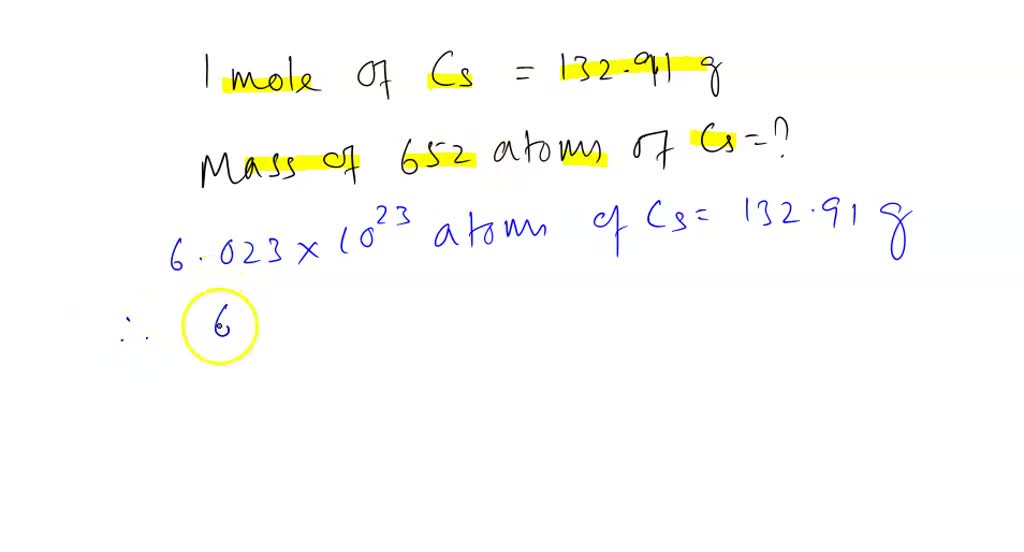 1 mole of Cs = 132.91 g
Mass of 652 atoms of Cs = ?
6.023 × 10²³ atoms of Cs = 132.91 g
∴ 6